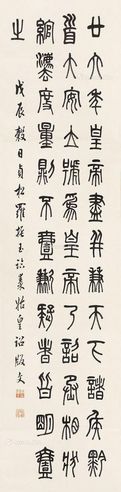 廿六年皇帝盡并兼天下諸侯黔
首大安立號為皇帝乃詔丞相狀
綰灋度量則不壹歉疑者皆明壹
之
戊辰穀日貞松羅振玉臨秦始皇詔版文